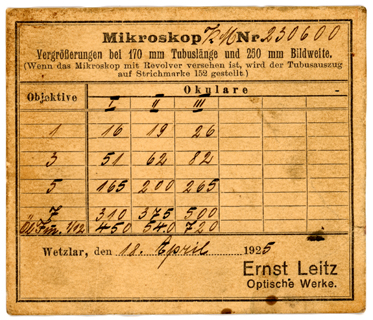 Mikroskop Nr. 230600
Vergrößerungen bei 170 mm Tubuslänge und 250 mm Bildweite.
(Wenn das Mikroskop mit Revolver versehen ist, wird der Tubusauszug
auf Strichmarke 152 gestellt.)
Objektive Okulare
I II III
1 16 19 26
3 51 62 82
5 165 200 265
7 310 375 500
1/12 450 540 720
Wetzlar, den 18. April 1925
Ernst Leitz
Optische Werke.